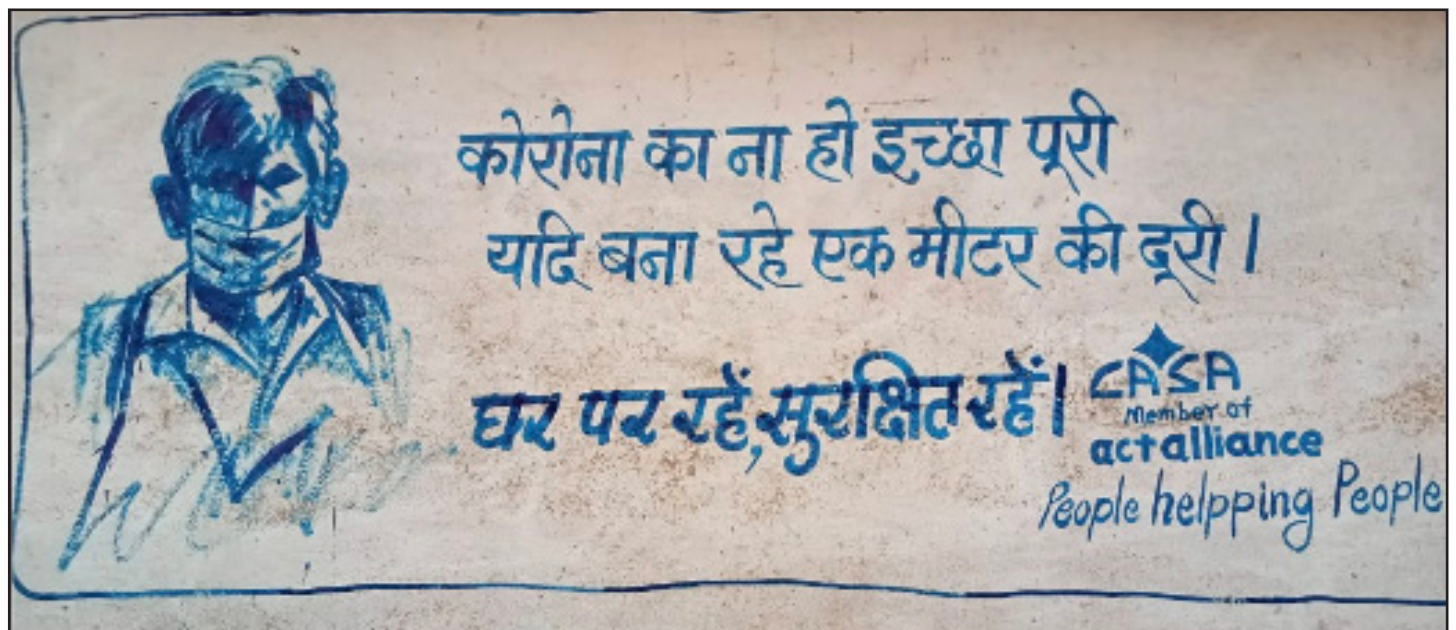 कोरोना का ना हो इच्छा पूरी
यदि बना रहे एक मीटर की दूरी।
घर पर रहें, सुरक्षित रहें।
CASA
Member of
actalliance
People helpping People